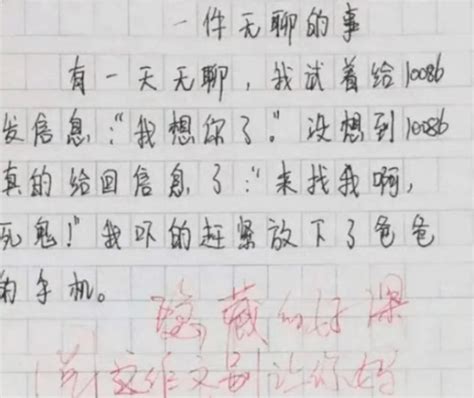 一件无聊的事
有一天无聊，我试着给10086
发信息："我想你了。"没想到10086
真的给回信息了："来找我啊，
死鬼！"我吓的赶紧放下了爸爸
的手机。
隐藏的好深
这文作文别让你妈